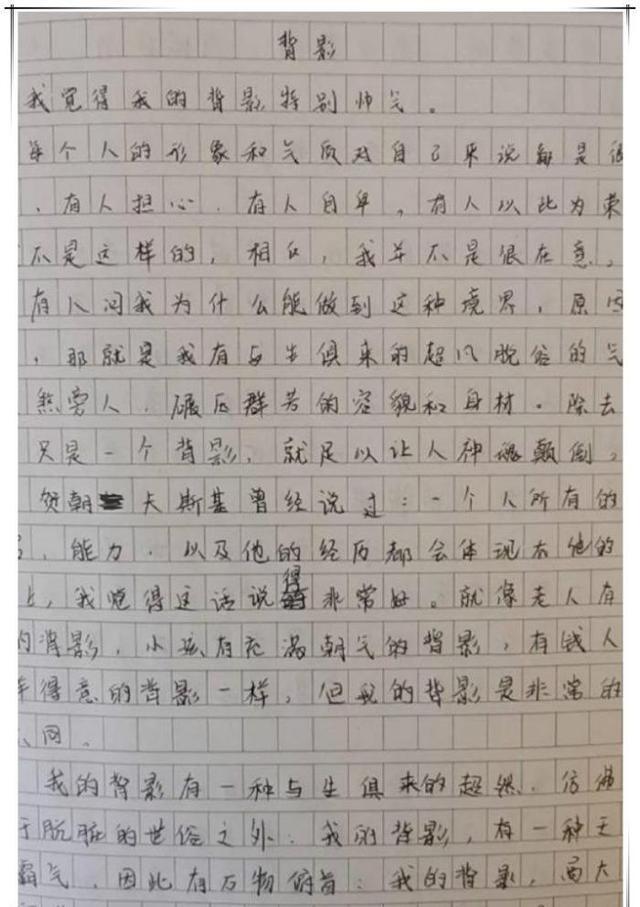 背影
我觉得我的背影特别帅气。
每个人的形象和气质对自己来说每是很
、有人担心、有人自卑，有人以此为荣
不是这样的，相反，我并不是很在意，
有人问我为什么能做到这种境界，原因
，那就是我有与生俱来的超凡脱俗的气
煞旁人、碾压群芳的容貌和身材。除去
只是一个背影，就足以让人神魂颠倒，
贺朝卡斯基曾经说过：一个人所有的
，能力，以及他的经历都会体现在他的
上，我觉得这话说得非常好。就像老人有
的背影，小孩有充满朝气的背影，有钱人
得意的背影一样，但我的背影是非常的
同。
我的背影有一种与生俱来的超然、仿佛
于肮脏的世俗之外；我的背影，有一种王
霸气，因此有万物俯首；我的背影，高大